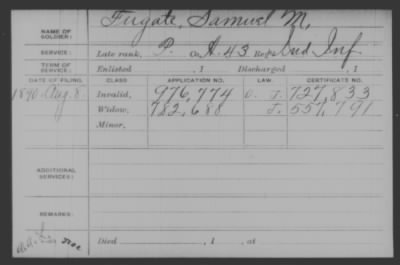 NAME OF SOLDIER: Fugate, Samuel M.
SERVICE: Late rank, P. Co. H. 43 Reg't Ind Inf.
TERM OF SERVICE: Enlisted , 1 Discharged , 1
DATE OF FILING. CLASS APPLICATION NO. LAW. CERTIFICATE NO.
1890 Aug. 8 Invalid, 976,774 O. J. 727,833
Widow, 782,688 J. 557,791
Minor,
ADDITIONAL SERVICES:
REMARKS:
Died , 1 , at